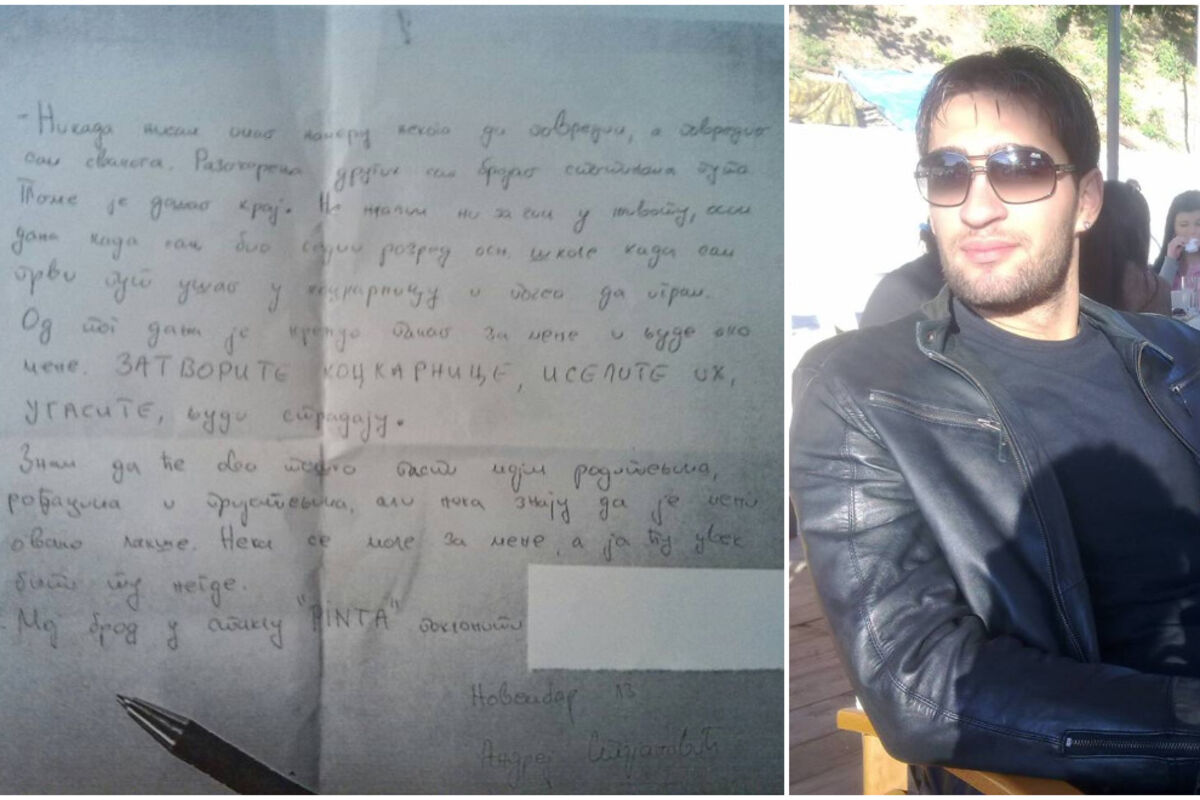 - Никада нисам имао намеру некога да повредим, а повредио
сам свакога. Разочарења других сам бројао стотинама пута.
Томе је дошао крај. Не жалим ни за чим у животу, осим
дана када сам био седми розред осн. школе када сам
први пут ушао у коцкарницу и почео да играм.
Од тог дана је кренуо пакао за мене и људе око
мене. ЗАТВОРИТЕ КОЦКАРНИЦЕ, ИСЕЛИТЕ ИХ,
УГАСИТЕ, људи страдају.
Знам да ће ово тешко пасти мојим родитељима,
рођацима и пријатељима, али нека знају да је мени
овако лакше. Нека се моле за мене, а ја ћу увек
бити ту негде.
- Мој брод у "PINTA" поклонити
Новембар 13
Андреј